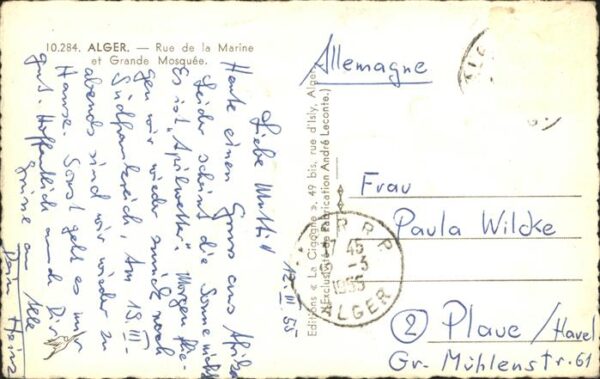 10.284. ALGER. — Rue de la Marine
et Grande Mosquée.
17. III 55
Liebe Mutti!
Heute einen Gruss aus Afrika
Leider scheint die Sonne nicht
Es ist "Aprilwetter". Morgen flie-
gen wir wieder zurück nach
Südfrankreich. Am 19. III
abends sind wir wieder zu
Hause. Sonst geht es mir
gut. Hoffentlich auch Dir
Grüsse an Alle
Dein Heinz
Editions « La Cigogne », 49 bis, rue d'Isly, Alger
(Exclusivité de Fabrication André Leconte.)
Allemagne
R P
17 45
-3
1955
ALGER
Frau
Paula Wilcke
② Plaue/Havel
Gr. Mühlenstr. 61